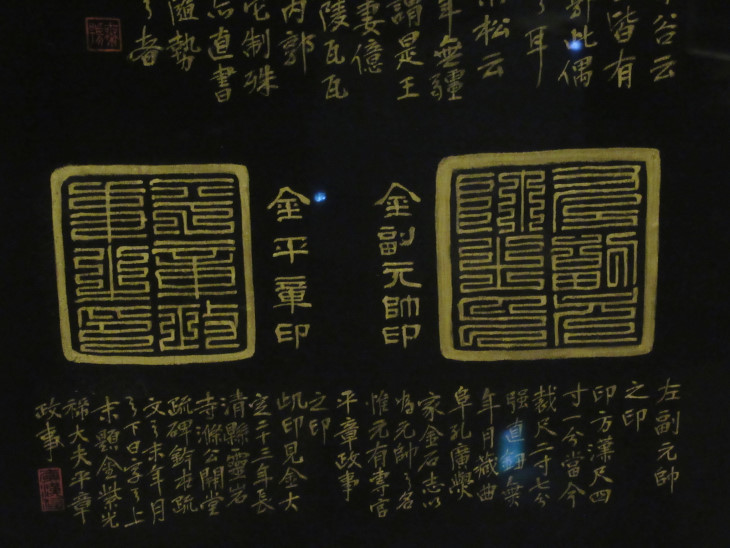 谷云
皆有
此偶
耳
松云
年無疆
謂是王
妻億
陵瓦瓦
内郭
制殊
直書
隨勢
者
金副元帥印
金平章印
左副元帥
之印
印方漢尺四
寸一分當今
裁尺二寸七分
强直鈕無
年月藏曲
阜孔廣
家金石志以
為元帥之名
惟元有專官
平章政事
之印
此印見金大
定二十三年長
清縣靈岩
寺滌公開堂
疏碑鈐本疏
文之末年月
之下日字之上
末題金紫光
祿大夫平章
政事